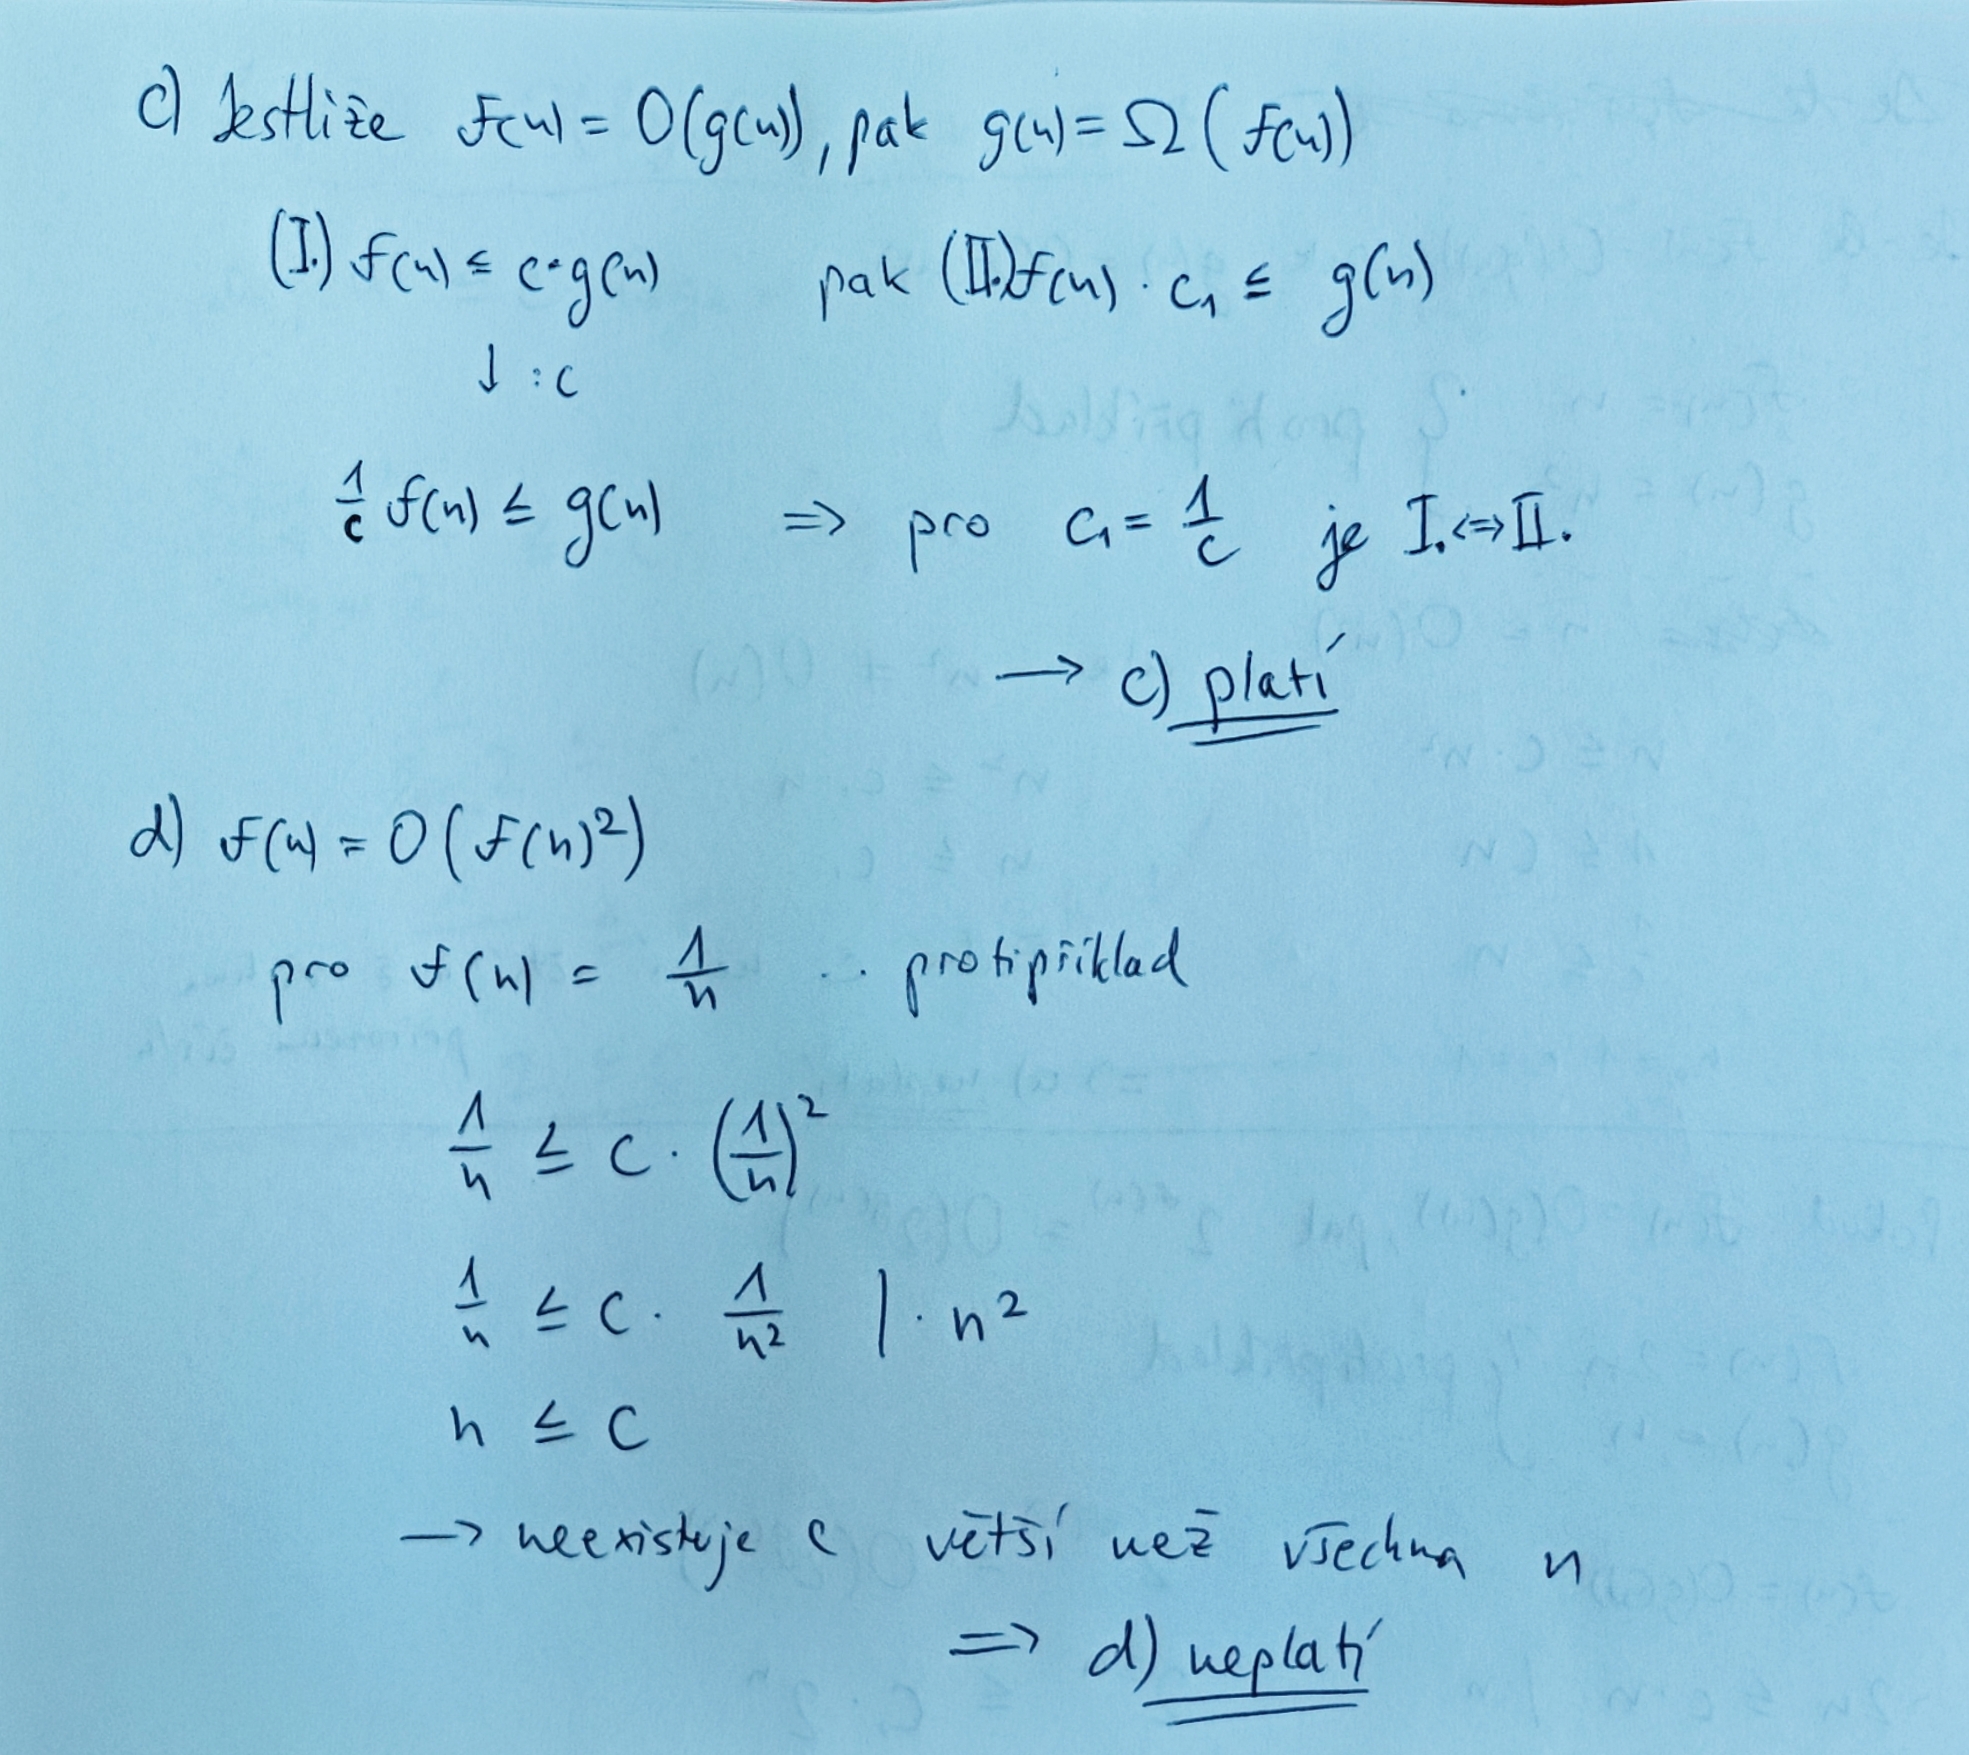 c) Jestliže f(n) = O(g(n)), pak g(n) = Ω(f(n))
(I.) f(n) ≤ c·g(n) pak (II.) f(n) · c₁ ≤ g(n)
↓ :c
1/c f(n) ≤ g(n) => pro c₁ = 1/c je I. <=> II.
→ c) platí
d) f(n) = O(f(n)²)
pro f(n) = 1/n .. protipříklad
1/n ≤ c · (1/n)²
1/n ≤ c · 1/n² | · n²
n ≤ c
→ neexistuje c větší než všechna n
=> d) neplatí